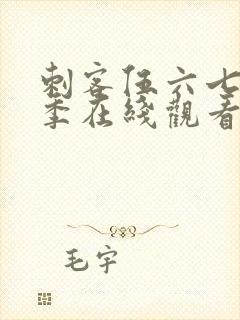 刺客伍六七
季在綫觀看
毛宇